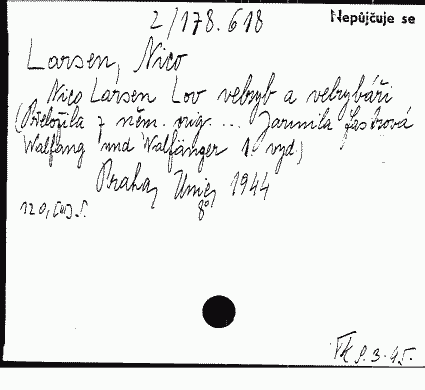 2/178.618
Nepůjčuje se
Larsen, Nico
Nico Larsen Lov velryb a velrybáři
(Přeložila z něm. orig. ... Jarmila Fastrová
Walfang und Walfänger 1. vyd.)
Praha, Unie, 1944
8°
120, [III] s.
9.3.45.